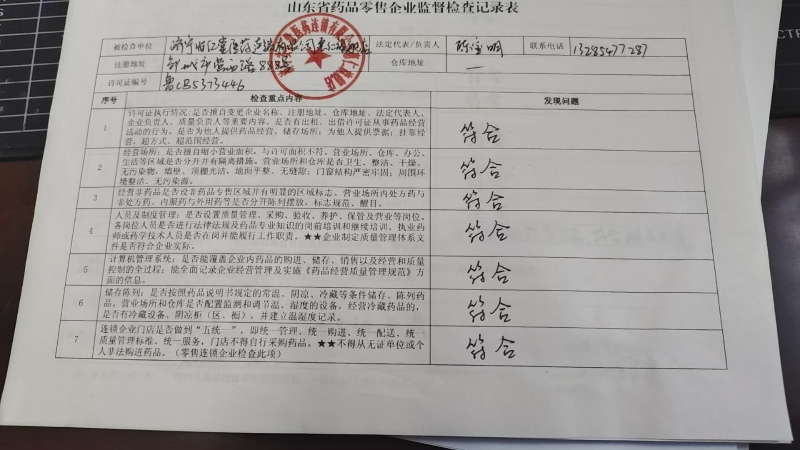 山东省药品零售企业监督检查记录表
被检查单位
法定代表/负责人
联系电话 13285477287
注册地址
仓库地址 一
许可证编号 鲁CB5373446
序号 检查重点内容 发现问题
1 许可证执行情况:是否擅自变更企业名称、注册地址、仓库地址、法定代表人、
企业负责人、质量负责人等重要内容。是否有出租、出借许可证从事药品经营
活动的行为。是否为他人提供药品经营、储存场所;为他人提供票据;挂靠经
营,超方式、超范围经营。
符合
2 经营场所:是否擅自缩小营业面积,与许可面积不符。营业场所、仓库、办公、
生活等区域是否分开并有隔离措施。营业场所和仓库是否卫生、整洁、干燥、
无污染物,墙壁、顶棚光洁,地面平整、无缝隙;门窗结构严密牢固;周围环
境整洁、无污染源。
符合
3 经营非药品是否设非药品专售区域并有明显的区域标志。营业场所内处方药与
非处方药、内服药与外用药等是否分开陈列摆放,标志规范、醒目。
符合
4 人员及制度管理:是否设置质量管理、采购、验收、养护、保管及营业等岗位。
各岗位人员是否进行法律法规及药品专业知识的岗前培训和继续培训。执业药
师或药学技术人员是否在岗并能履行工作职责。★★企业制定质量管理体系文
件是否符合企业实际。
符合
5 计算机管理系统:是否能覆盖企业内药品的购进、储存、销售以及经营和质量
控制的全过程;能全面记录企业经营管理及实施《药品经营质量管理规范》方
面的信息。
符合
6 储存陈列:是否按照药品说明书规定的常温、阴凉、冷藏等条件储存、陈列药
品。营业场所和仓库是否配置监测和调节温、湿度的设备,经营冷藏药品的,
是否有冷藏设备、阴凉柜(区、柜),并建立温湿度记录。
符合
7 连锁企业门店是否做到“五统一”,即统一管理、统一购进、统一配送、统一
质量管理标准、统一服务,门店不得自行采购药品。★★不得从无证单位或个
人非法购进药品。(零售连锁企业检查此项)
符合